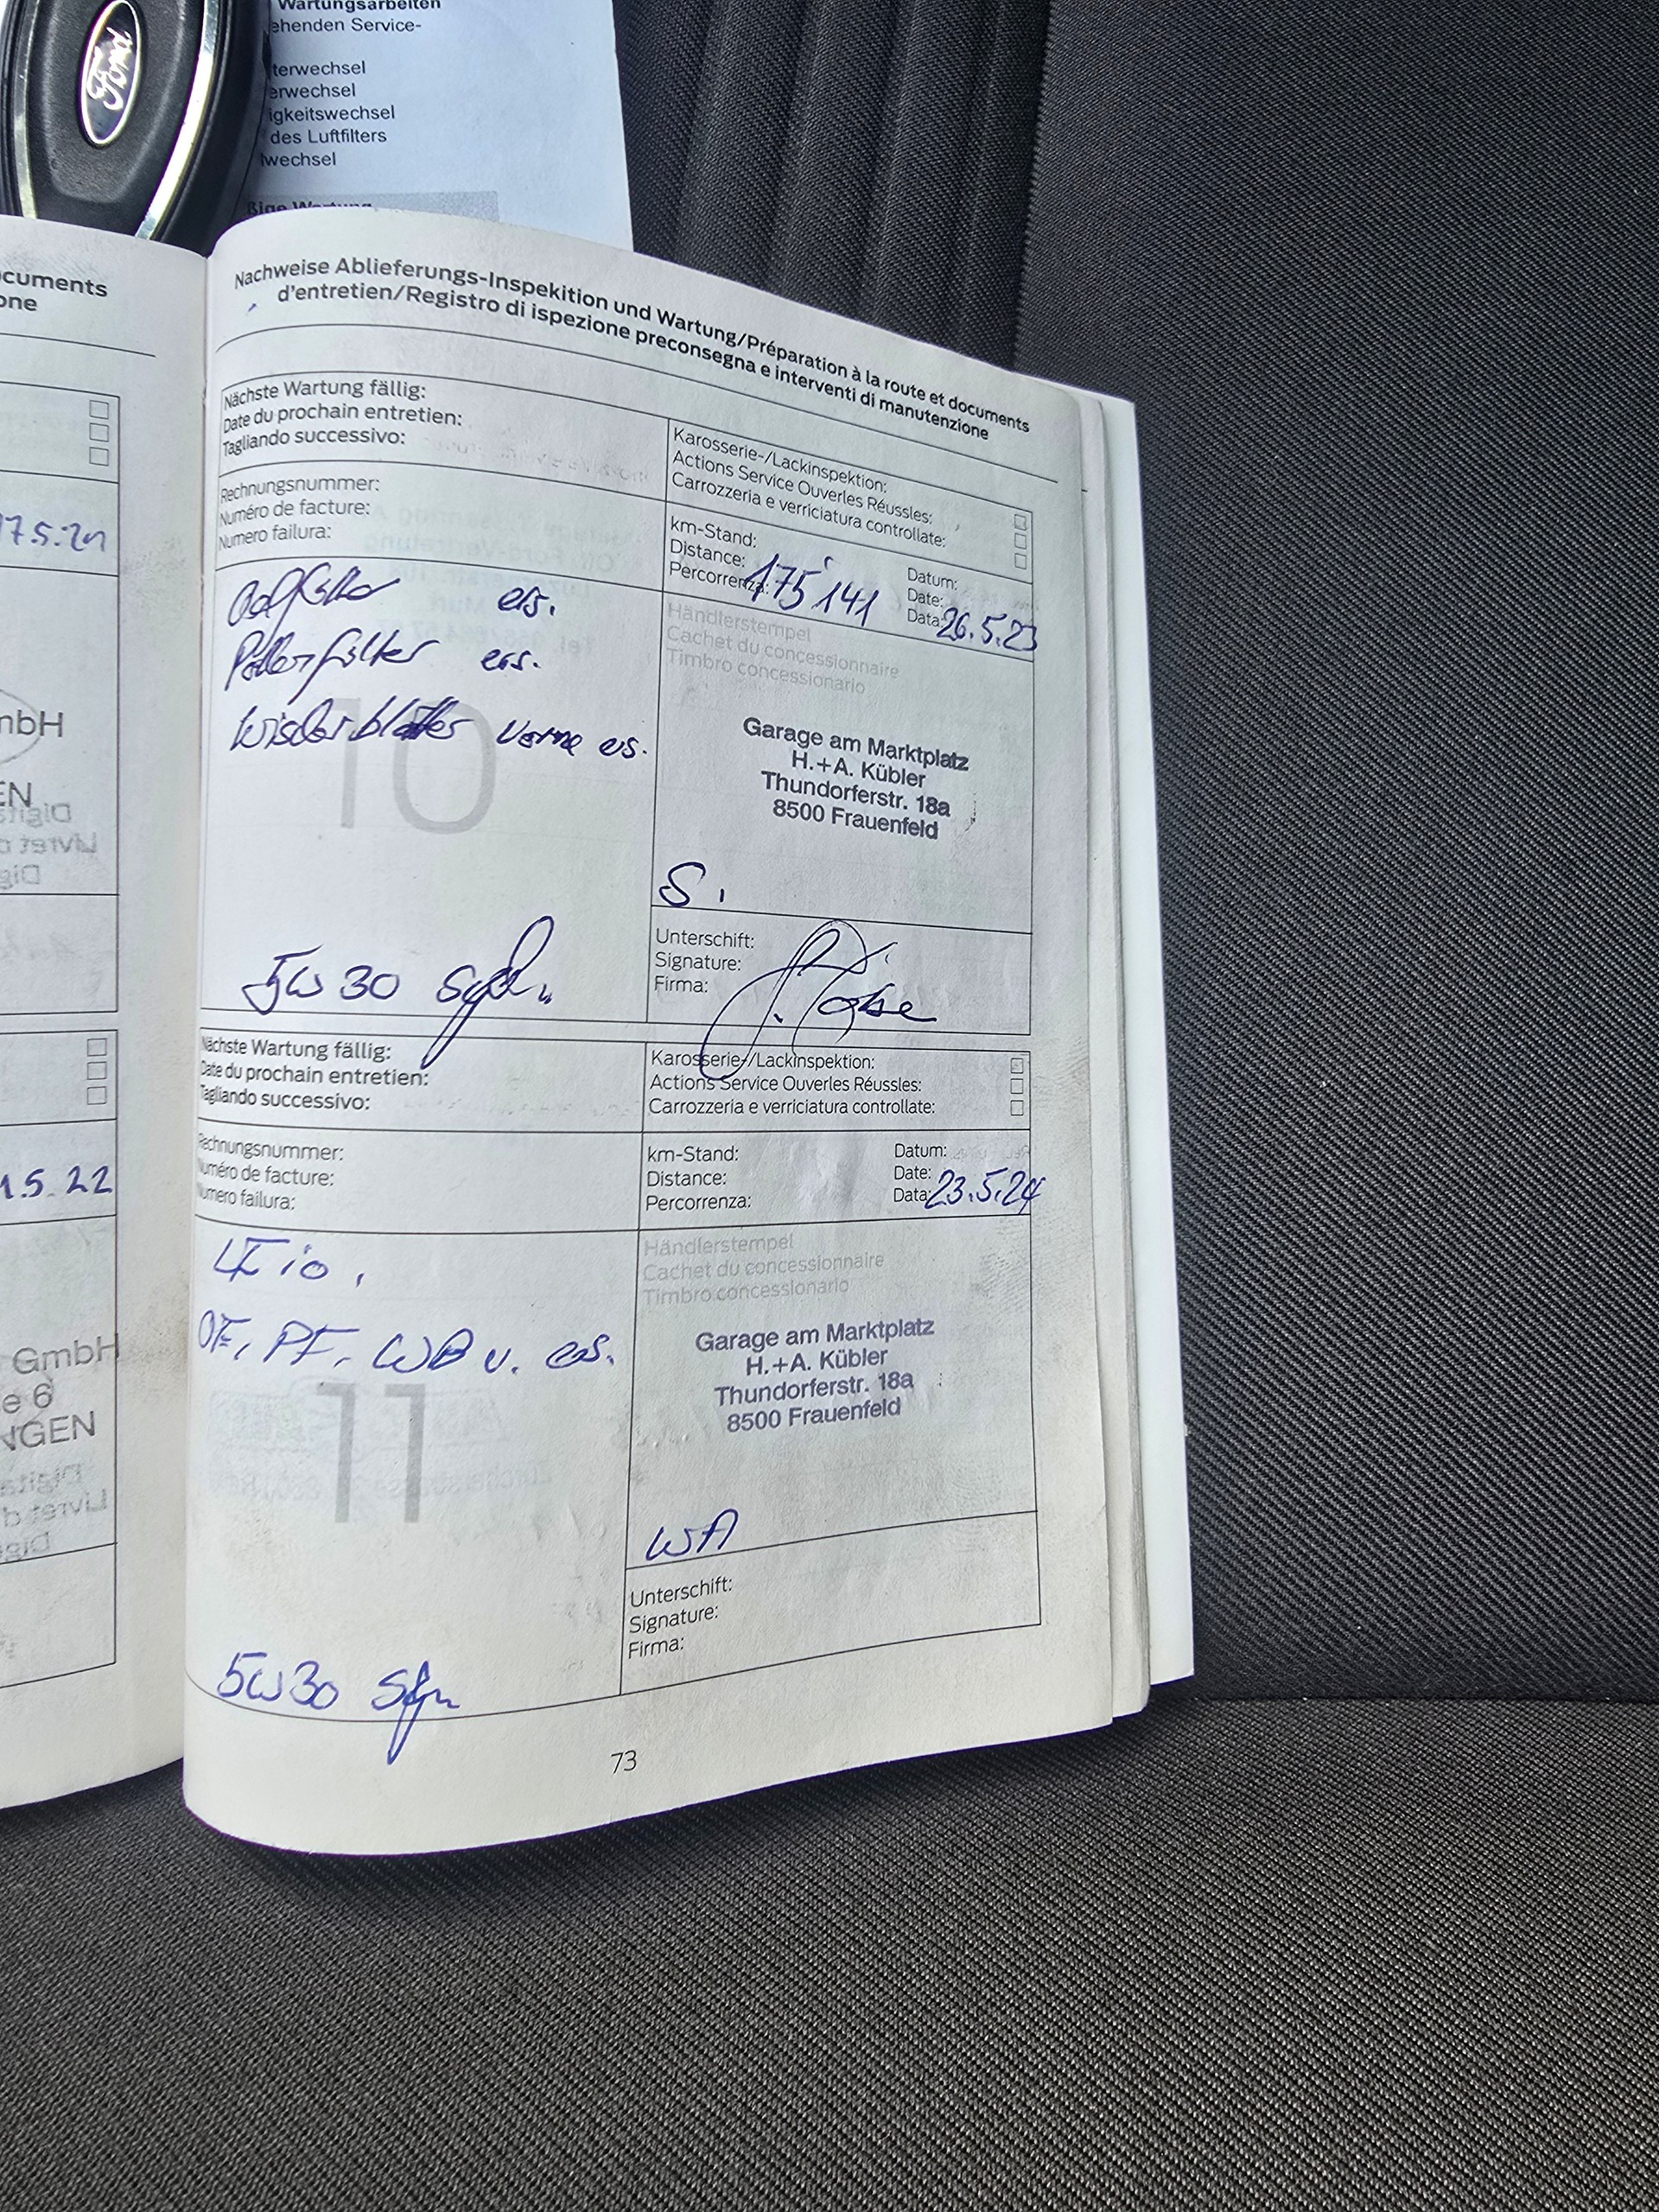 Wartungsarbeiten
ehenden Service-
terwechsel
erwechsel
igkeitswechsel
des Luftfilters
lwechsel
ßige Wartung
Ford
cuments
one
17.5.21
mbH
EN
1.5.22
GmbH
e 6
NGEN
Nachweise Ablieferungs-Inspekition und Wartung/Préparation à la route et documents
d'entretien/Registro di ispezione preconsegna e interventi di manutenzione
Nächste Wartung fällig:
Date du prochain entretien:
Tagliando successivo:
Karosserie-/Lackinspektion:
Actions Service Ouverles Réussles:
Carrozzeria e verriciatura controllate:
Rechnungsnummer:
Numéro de facture:
Numero failura:
km-Stand:
Distance:
Percorrenza: 175'141
Datum:
Date:
Data: 26.5.23
Oelfilter ers.
Pollenfilter ers.
Wischerblätter vorne ers.
10
5W30
Händlerstempel
Cachet du concessionnaire
Timbro concessionario
Garage am Marktplatz
H.+A. Kübler
Thundorferstr. 18a
8500 Frauenfeld
S.
Unterschift:
Signature:
Firma:
Nächste Wartung fällig:
Date du prochain entretien:
Tagliando successivo:
Karosserie-/Lackinspektion:
Actions Service Ouverles Réussles:
Carrozzeria e verriciatura controllate:
Rechnungsnummer:
Numéro de facture:
Numero failura:
km-Stand:
Distance:
Percorrenza:
Datum:
Date:
Data: 23.5.24
LF io.
OF, PF, WB v. ers.
11
5W30
Händlerstempel
Cachet du concessionnaire
Timbro concessionario
Garage am Marktplatz
H.+A. Kübler
Thundorferstr. 18a
8500 Frauenfeld
WA
Unterschift:
Signature:
Firma:
73